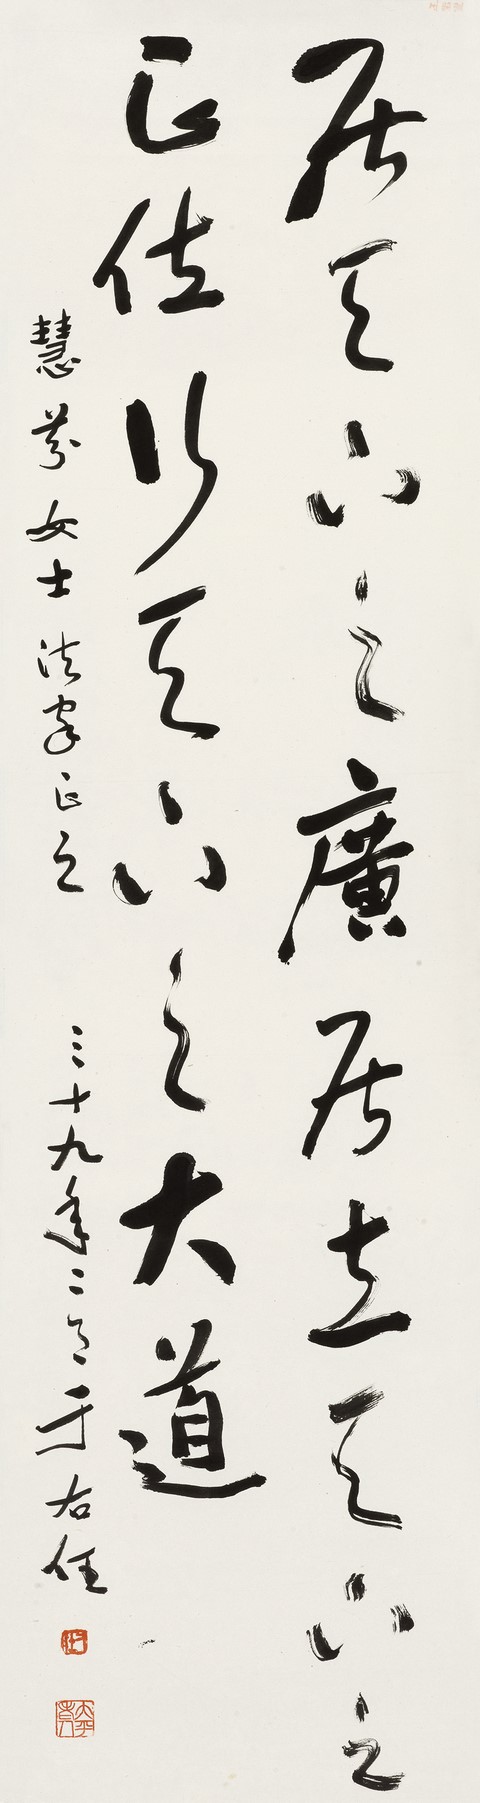 居天下之廣居立天下之
正位行天下之大道
慧芬女士法家正之
三十九年二月于右任